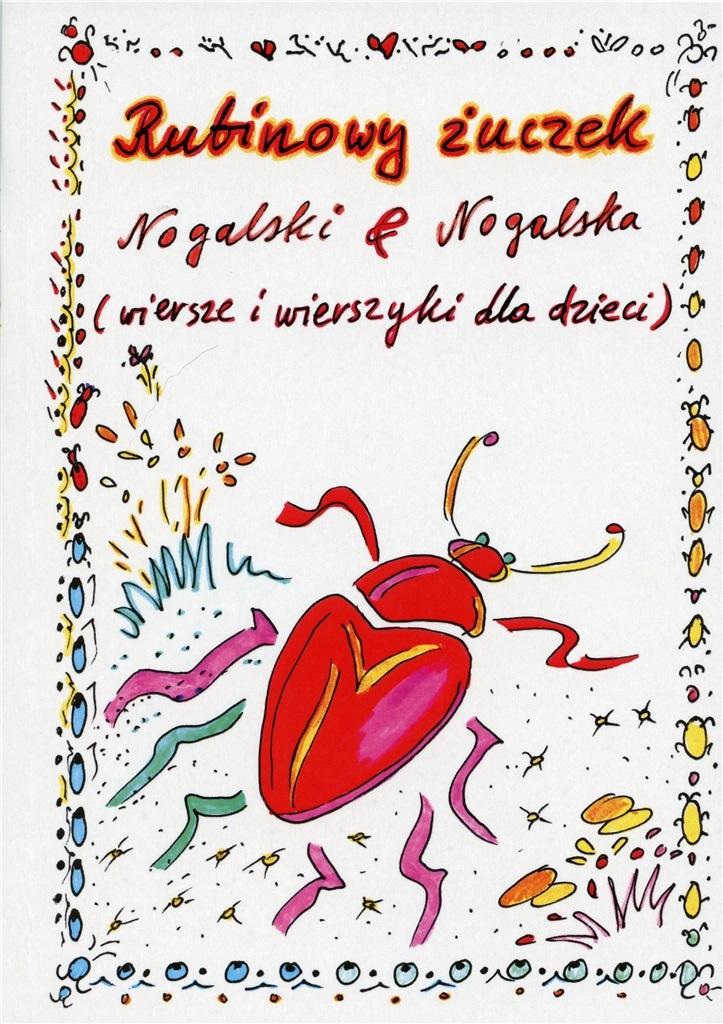 Rubinowy żuczek
Nogalski & Nogalska
(wiersze i wierszyki dla dzieci)